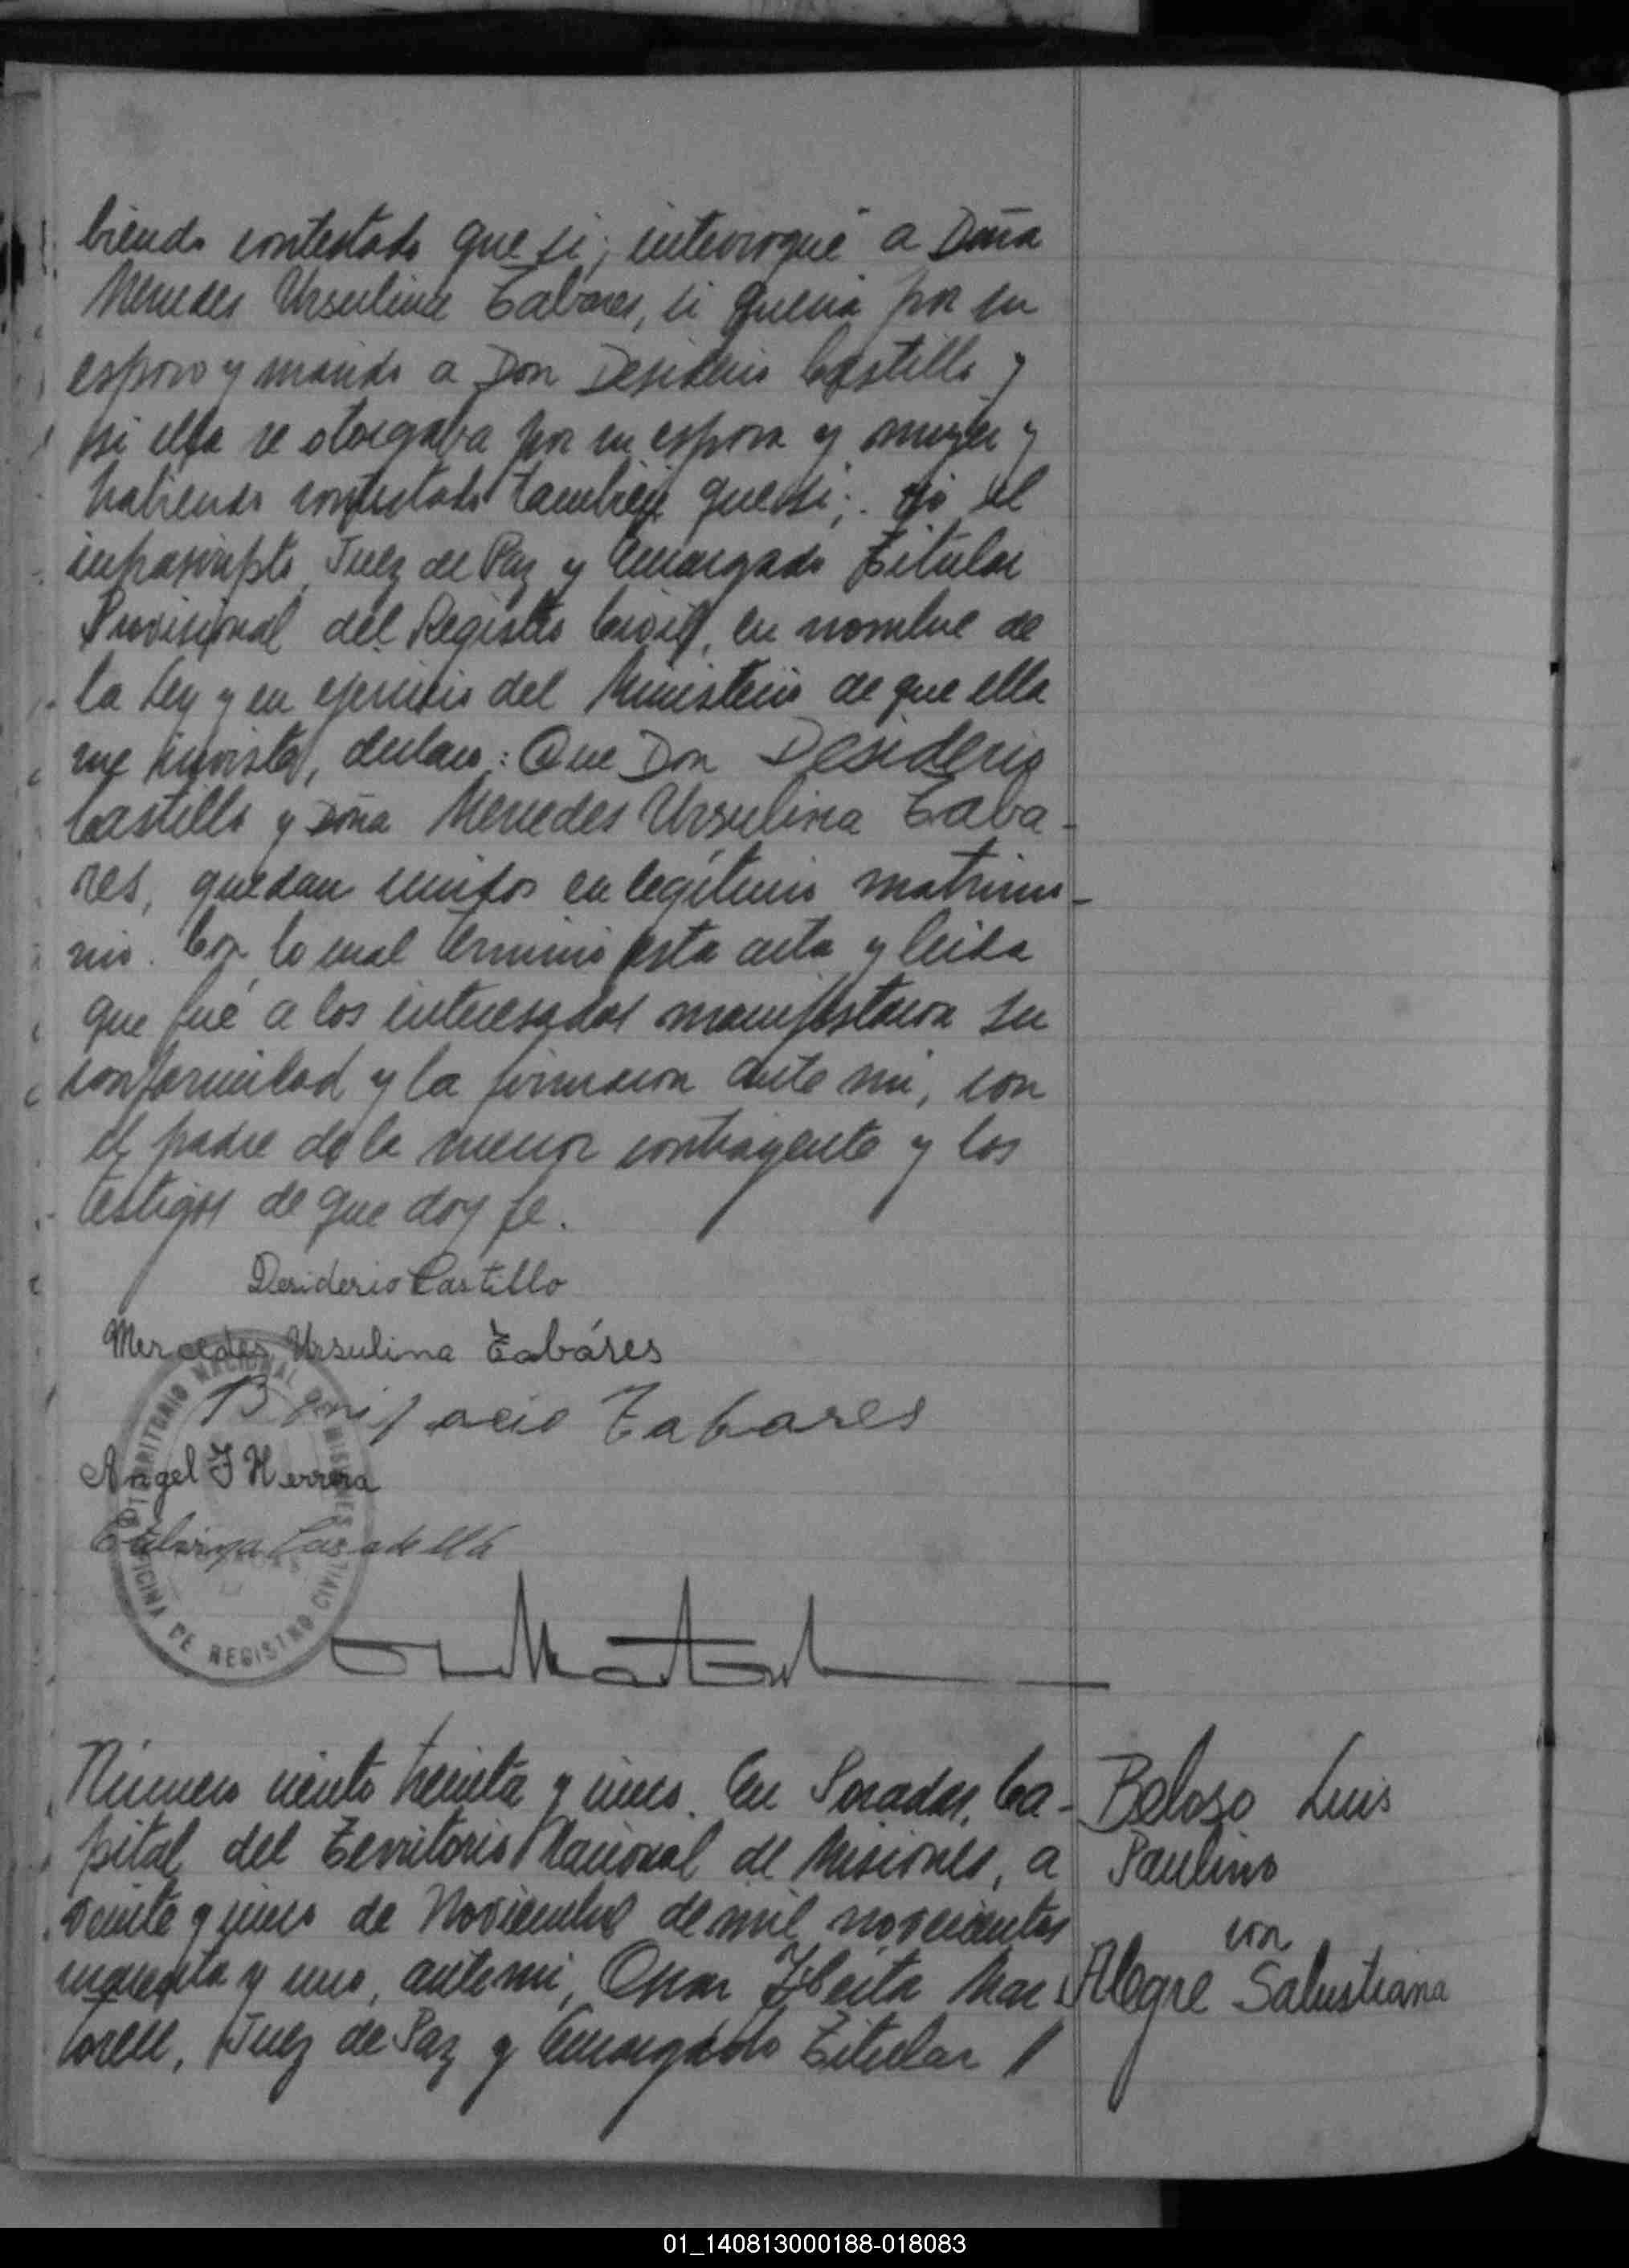 biendo contestado que si; interrogué a Doña
Mercedes Ursulina Tabares, si queria por su
esposo y marido a Don Desiderio Castillo y
si ella se otorgaba por su esposa y mujer y
habiendo contestado también que si; yo el
infrascripto Juez de Paz y Encargado Titular
Provisional del Registro Civil, en nombre de
la Ley y en ejercicio del Ministerio de que ella
me invista, declaro: Que Don Desiderio
Castillo y Doña Mercedes Ursulina Taba-
res, quedan unidos en legítimo matrimo-
nio. Con lo cual termino esta acta y leida
que fué a los interesados manifestaron su
conformidad y la firmaron ante mi, con
el padre de la menor contrayente y los
testigos de que doy fe.
Desiderio Castillo
Mercedes Ursulina Tabáres
Bonifacio Tabares
Angel J Herrera
TERRITORIO NACIONAL DE MISIONES
OFICINA DE REGISTRO CIVIL
Número ciento treinta y uno. En Posadas, Ca-
pital del Territorio Nacional de Misiones, a
veinte y uno de Noviembre de mil novecientos
cuarenta y uno, ante mi, Oscar Mar-
torell, Juez de Paz y Encargado Titular /
Beloso Luis
Paulino
con
Alegre Salustiana
01_140813000188-018083